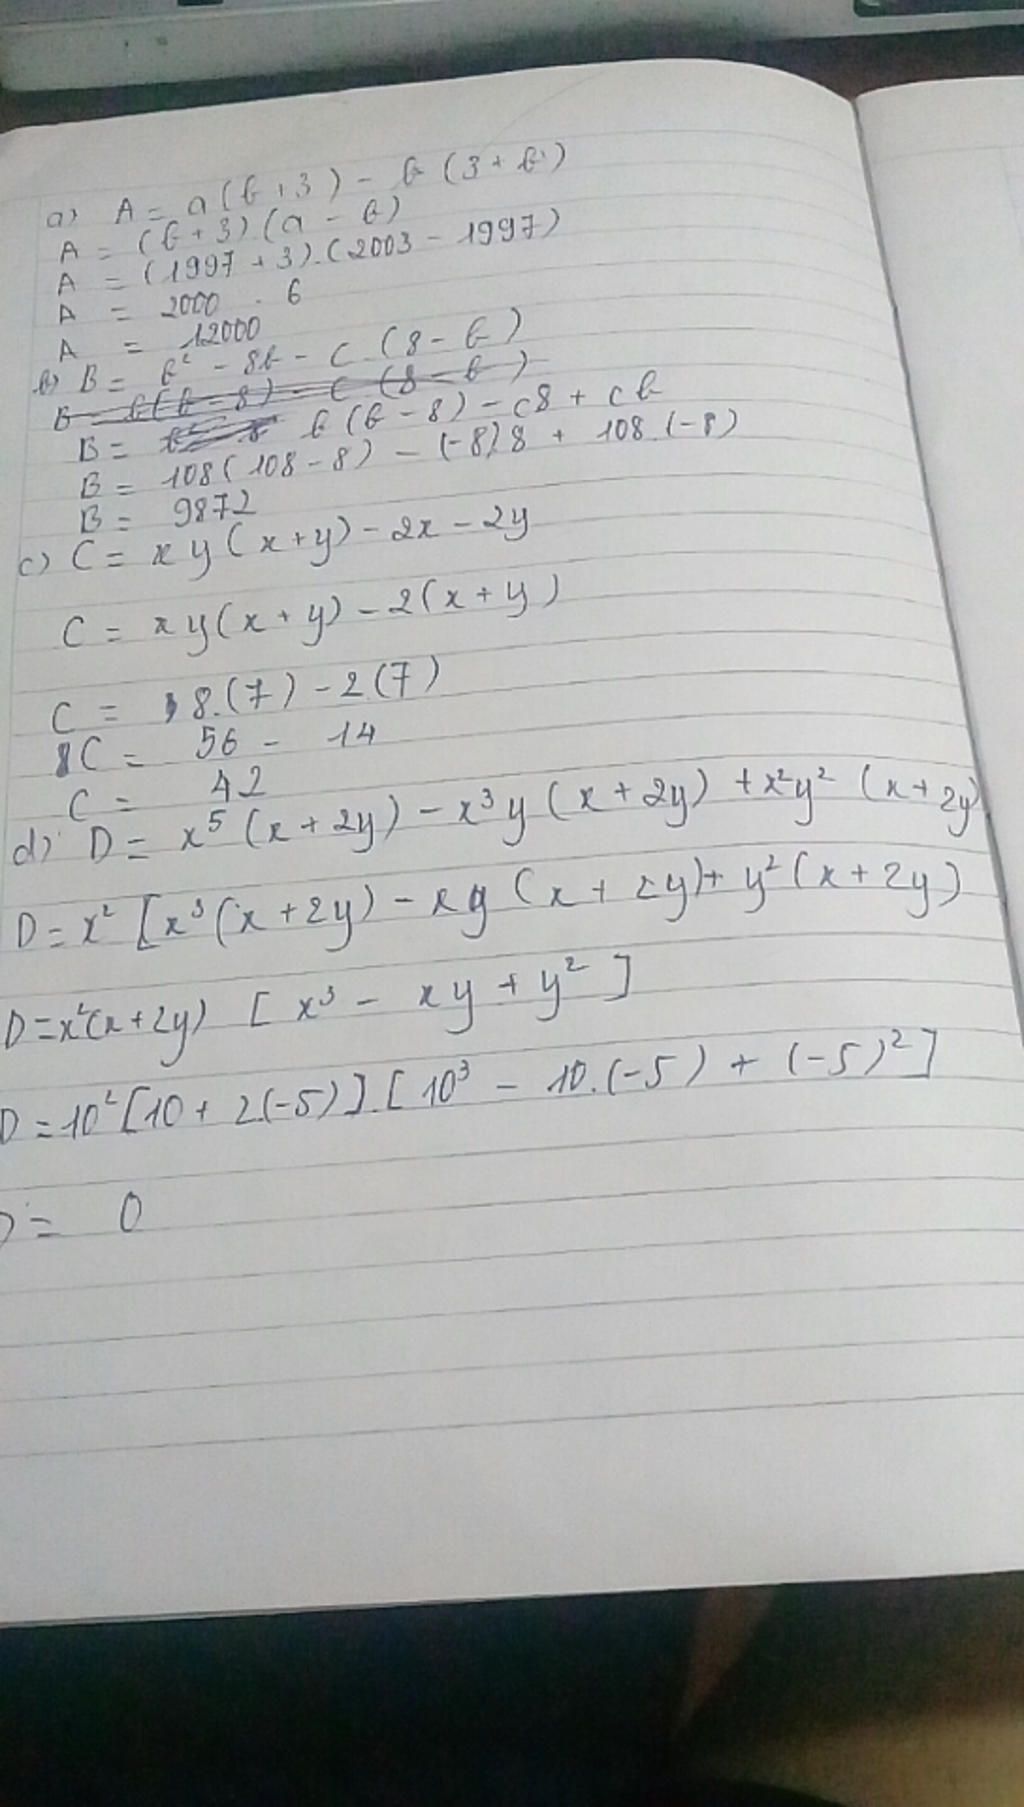 a) A = a(b+3) - b(3+b)
A = (b+3)(a - b)
A = (1997 + 3).(2003 - 1997)
A = 2000 . 6
A = 12000
b) B = b² - 8b - c.(8 - b)
B = b(b - 8) - c(8 - b)
B = b(b - 8) - c8 + cb
B = 108(108 - 8) - (-8).8 + 108.(-8)
B = 9872
c) C = xy(x+y) - 2x - 2y
C = xy(x+y) - 2(x+y)
C = 8.(7) - 2(7)
C = 56 - 14
C = 42
d) D = x⁵(x+2y) - x³y(x+2y) + x²y²(x+2y)
D = x²[x³(x+2y) - xy(x+2y) + y²(x+2y)
D = x²(x+2y) [x³ - xy + y²]
D = 10²[10 + 2.(-5)].[10³ - 10.(-5) + (-5)²]
D = 0